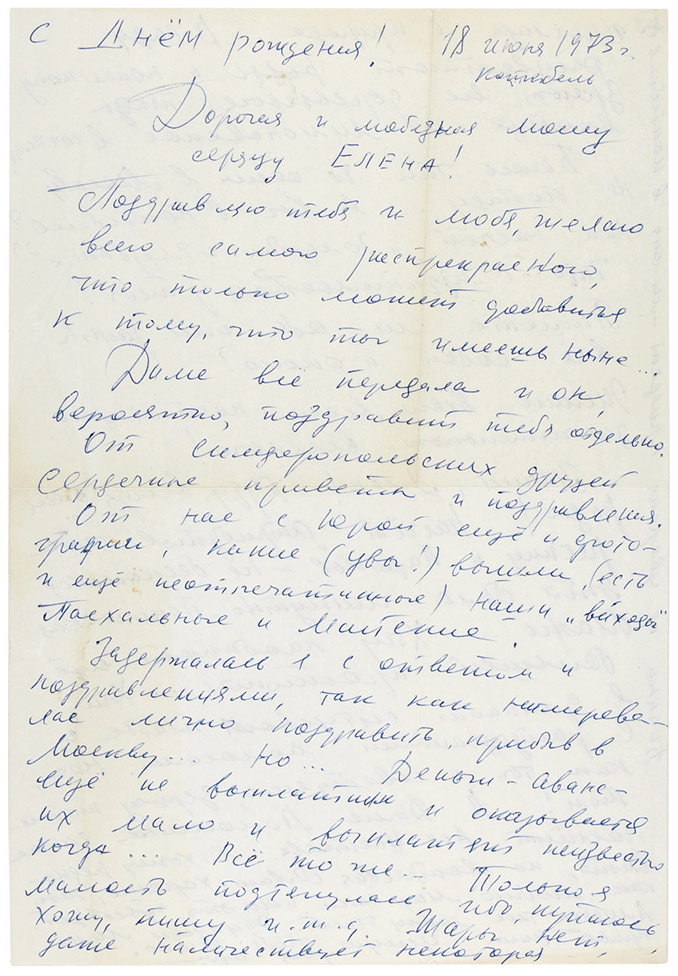 С Днём рождения! 18 июня 1973 г.
Коктебель
Дорогая и любезная моему
сердцу ЕЛЕНА!
Поздравляю тебя и любя, желаю
всего самого распрекрасного,
что только может добавиться
к тому, что ты имеешь ныне...
Диме всё передала и он,
вероятно, поздравит тебя отдельно.
От симферопольских друзей
сердечные приветы и поздравления.
От нас с Юрой ещё и фото-
графии, какие (увы!) вышли, (есть
и ещё неотпечатанные) наши „выходы"
Пасхальные и
Задержалась я с ответом и
поздравлениями, так как намерева-
лась лично поздравить прибыв в
Москву... но... Деньги - аванс -
ещё не выплатили и оказывается
их мало и выплатят неизвестно
когда... Всё то же... Только я
малость подтянулась ибо, купаюсь,
хожу, пишу и.т.д. Жары нет,
даже наличествует некоторая